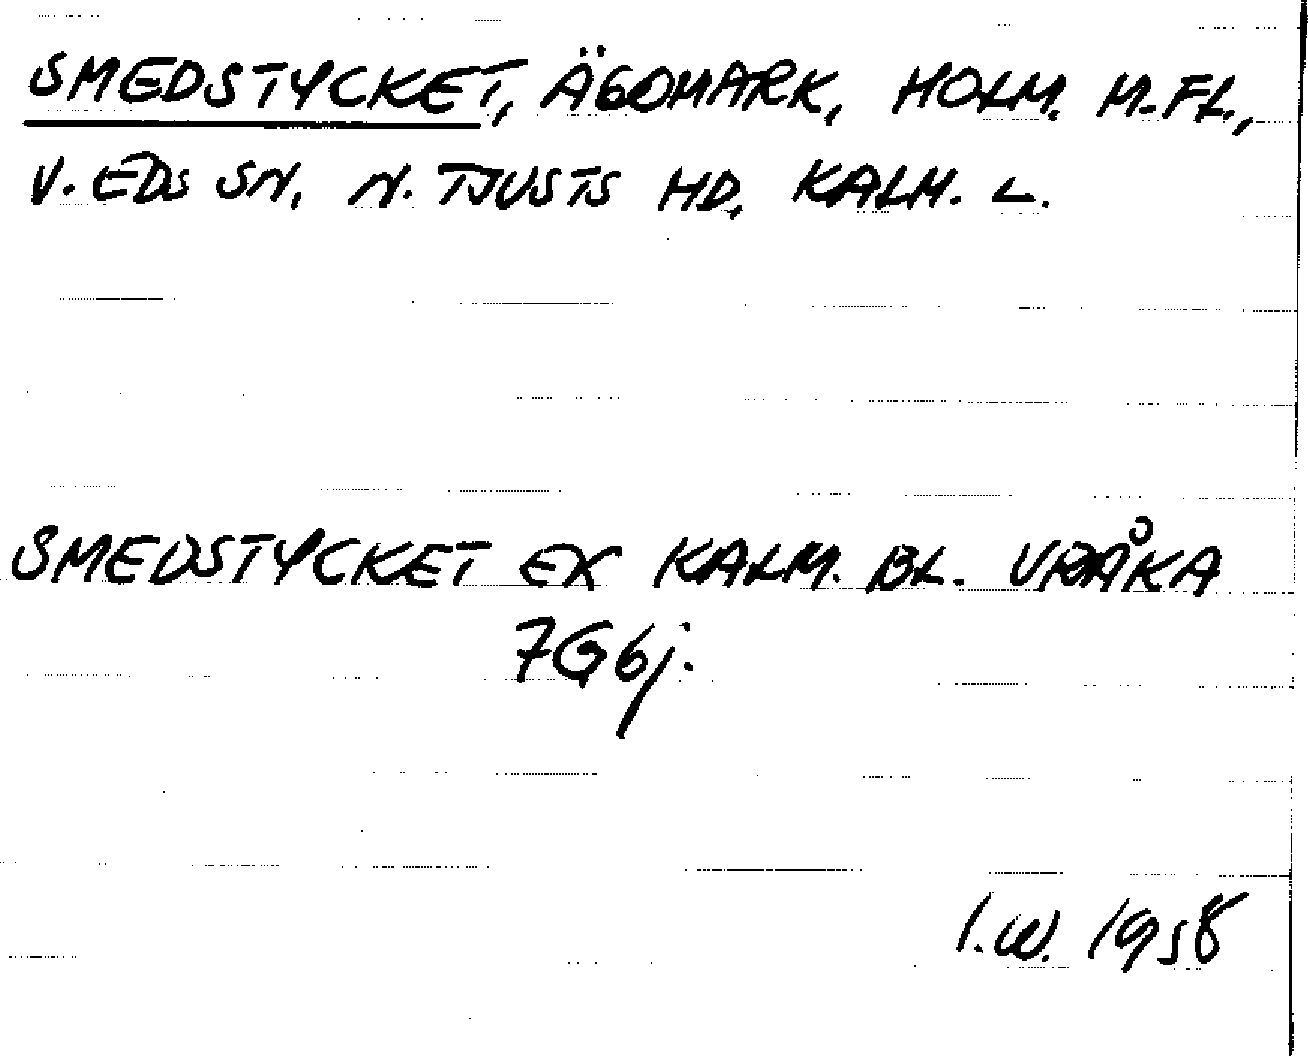 SMEDSTYCKET, ÄGOMARK, HOLM. M.FL.,
V. EDS SN, N. TJUSTS HD, KALM. L.
SMEDSTYCKET EK KALM. BL. VRÅKA
7G6j.
I.W. 1958